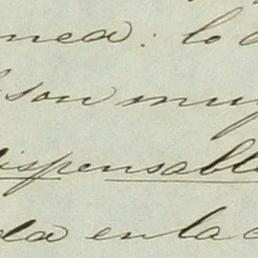 nea: lo
son muy
dispensable
da en la c